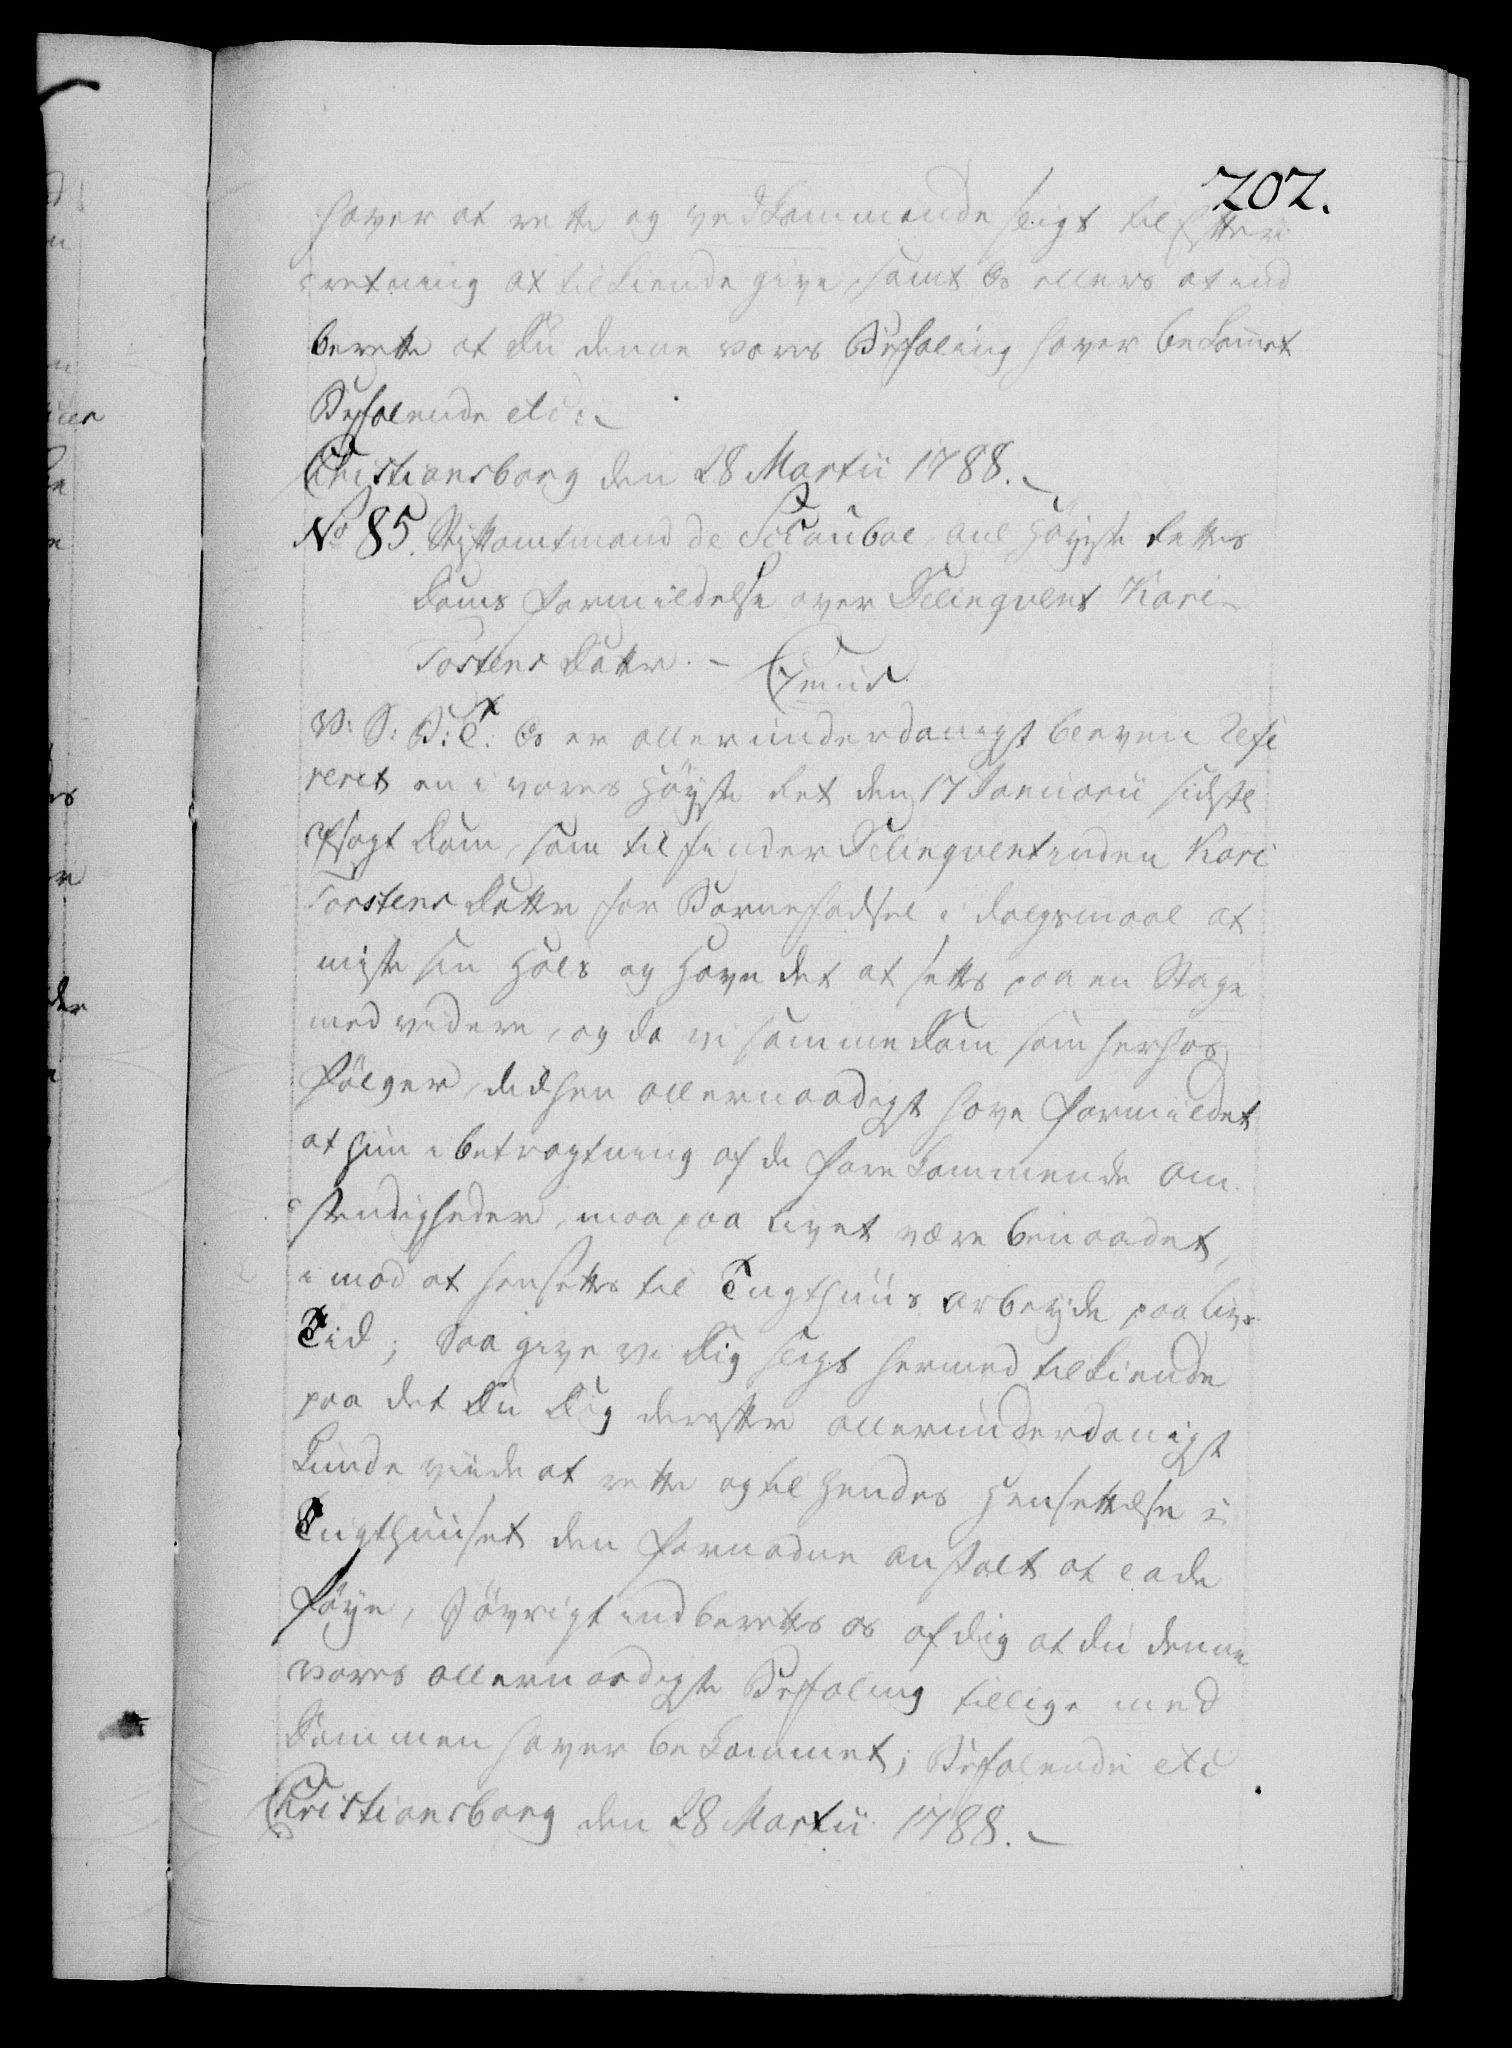 202.
haver at rette og vedkommende sligt til Efter
retning at tilkiende give, samt Os ellers at ind
berette at Du denne vores Befaling haver bekommet
Befalende etc:
Christiansborg den 28 Martii 1788.
No 85. Stiftamtmand de Schouboe anl Høyeste Rettes
Doms formildelse over Delinqvent Kari
Tostens Datter.
V: G: B: T: Os er allerunderdanigst bleven refe
reret en i vores Høyeste Ret den 17 Januarii sidst
afsagt Dom, som tilfinder Delinqventinden Kari
Torstens Datter for Barnefødsel i dølgsmaal at
miste sin Hals og Hovedet at settes paa en Stage
med videre, og da vi samme Dom som herhos
følger, didhen allernaadigst have formildet
at hun i betragtning af de forekommende om
stændigheder, maa paa Livet være benaadet,
imod at hensettes til Tugthuus arbeyde paa Livs
Tid; Saa give vi Dig sligt hermed tilkiende
paa det Du Dig derefter allerunderdanigst
kunde viide at rette og til hendes Hensettelse i
Tugthuuset den fornødne anstalt at lade
føye, I øvrigt indberettes os af dig at du denne
vores allernaadigste Befaling tillige med
Dommen haver bekommet; Befalende etc
Christiansborg den 28 Martii 1788.